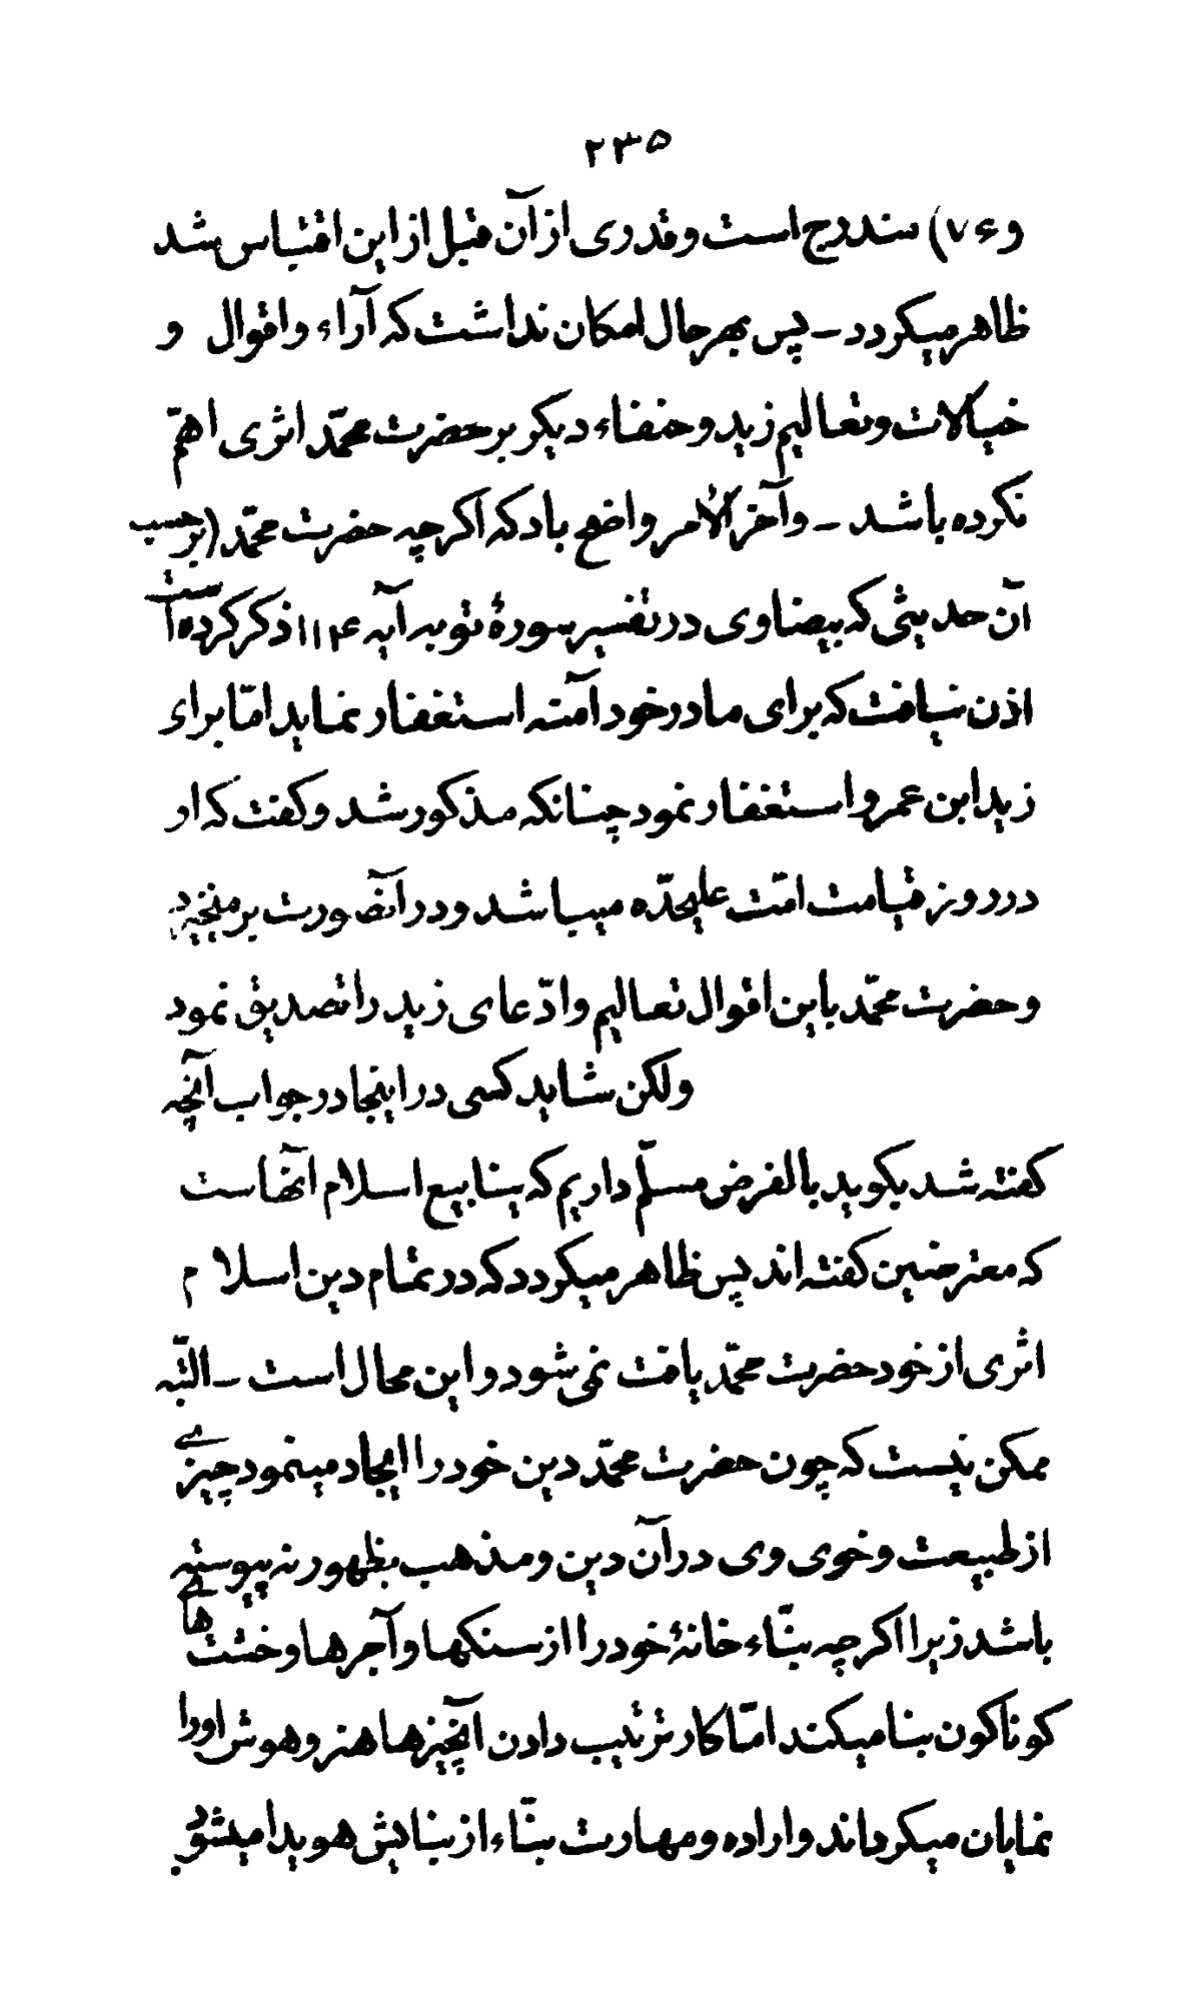 ۲۳۵
و ۷۶) مندرج است و قدری از آن قبل از این اقتباس شد
ظاهر میکردد ــ پس بهر حال امکان نداشت که آراء و اقوال و
خیالات و تعالیم زید و حنفاء دیکر بر حضرت محمّد اثری اهمّ
نکرده باشد ــ و آخر الأمر واضح باد که اکرچه حضرت محمّد (بر حسب
آن حدیثی که بیضاوی در تفسیر سورهٔ توبه آیه ۱۱۴ ذکر کرده است
اذن نیافت که برای مادر خود آمنه استغفار نماید امّا برای
زید ابن عمرو استغفار نمود چنانکه مذکور شد و کفت که او
در روز قیامت امّت علیحدّه میباشد و در آنصورت بر میخیزد
و حضرت محمّد باین اقوال تعالیم و ادّعای زید را تصدیق نمود
ولکن شاید کسی در اینجا در جواب آنچه
کفته شد بکوید بالفرض مسلّم داریم که ینابیع اسلام آنها است
که معترضین کفته اند پس ظاهر میکردد که در تمام دین اسلام
اثری از خود حضرت محمّد یافت نمی شود و این محال است ــ البتّه
ممکن نیست که چون حضرت محمّد دین خود را ایجاد مینمود چیزی
از طبیعت و خوی وی در آن دین و مذهب بظهور نه پیوسته
باشد زیرا اکرچه بنّاء خانهٔ خود را از سنکها و آجرها و خشت های
کوناکون بنا میکند امّا کار ترتیب دادن آنچیزها هنر و هوش او را
نمایان میکرداند و اراده و مهارت بنّاء از بنایش هویدا میشود